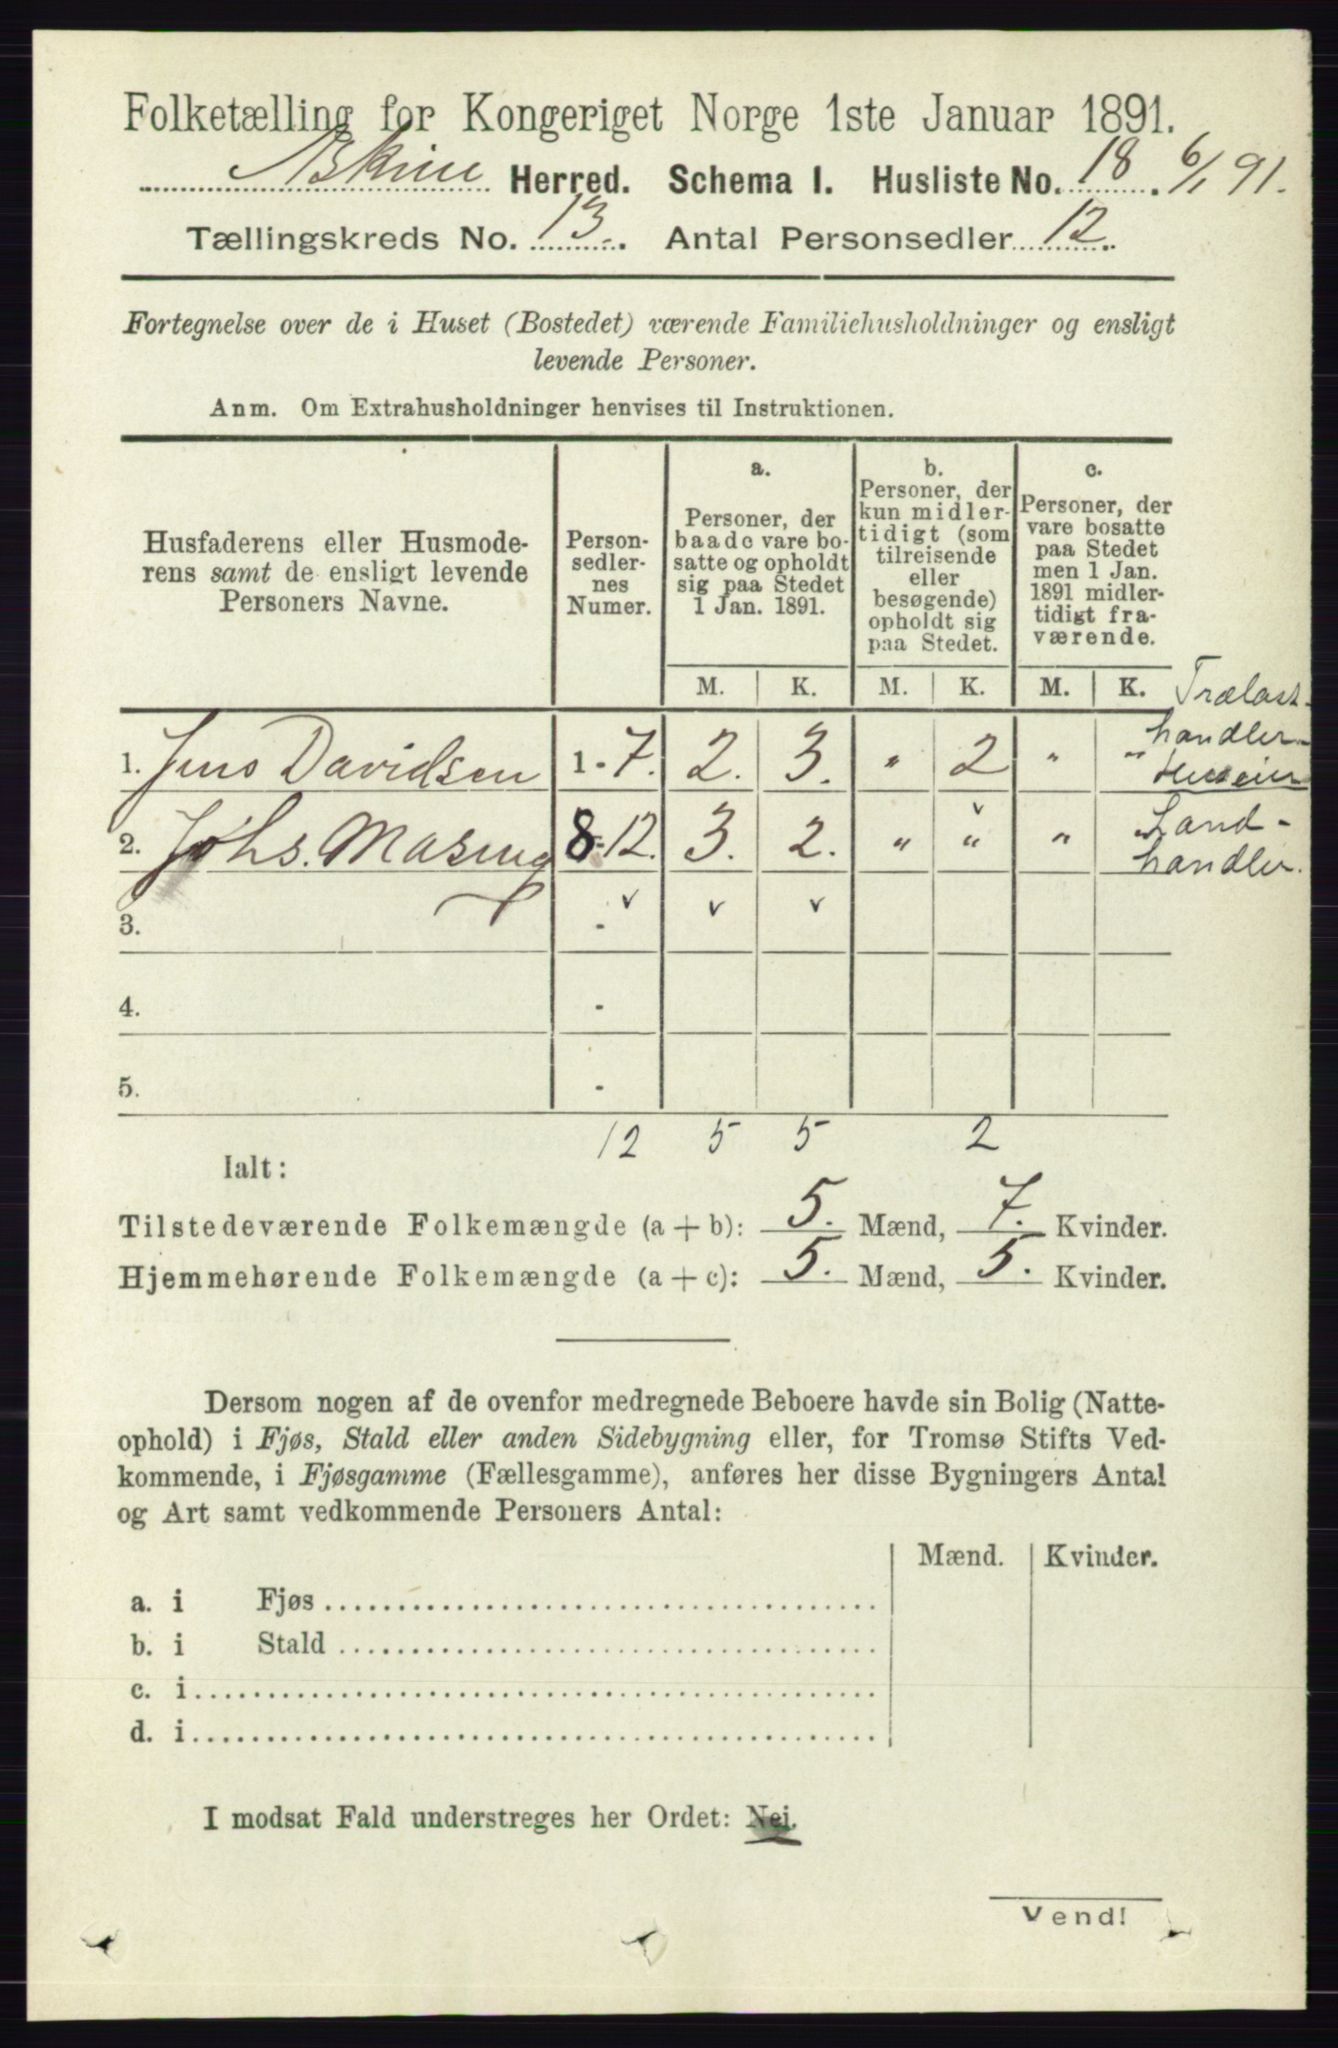 Folketælling for Kongeriget Norge 1ste Januar 1891.
Askim Herred. Schema I. Husliste No. 18. 6/1 91.
Tællingskreds No. 13. Antal Personsedler 12.
Fortegnelse over de i Huset (Bostedet) værende Familiehusholdninger og ensligt
levende Personer.
Anm. Om Extrahusholdninger henvises til Instruktionen.
Husfaderens eller Husmode-
rens samt de ensligt levende
Personers Navne.
Person-
sedler-
nes
Numer.
a.
Personer, der
baade vare bo-
satte og opholdt
sig paa Stedet
1 Jan. 1891.
b.
Personer, der
kun midler-
tidigt (som
tilreisende
eller
besøgende)
opholdt sig
paa Stedet.
c.
Personer, der
vare bosatte
paa Stedet
men 1 Jan.
1891 midler-
tidigt fra-
værende.
M. K. M. K. M. K.
Trælast-
handler-
Huseier
1. Jens Davidsen 1-7. 2. 3. " 2 " "
Land-
handler.
2. Johs. Masing 8-12. 3. 2. " " " "
3. -
4. -
5. -
12 5 5 2
Ialt:
Tilstedeværende Folkemængde (a + b): 5. Mænd, 7. Kvinder.
Hjemmehørende Folkemængde (a + c): 5. Mænd, 5. Kvinder.
Dersom nogen af de ovenfor medregnede Beboere havde sin Bolig (Natte-
ophold) i Fjøs, Stald eller anden Sidebygning eller, for Tromsø Stifts Ved-
kommende, i Fjøsgamme (Fællesgamme), anføres her disse Bygningers Antal
og Art samt vedkommende Personers Antal:
Mænd. Kvinder.
a. i Fjøs
b. i Stald
c. i
d. i
I modsat Fald understreges her Ordet: Nei.
Vend!